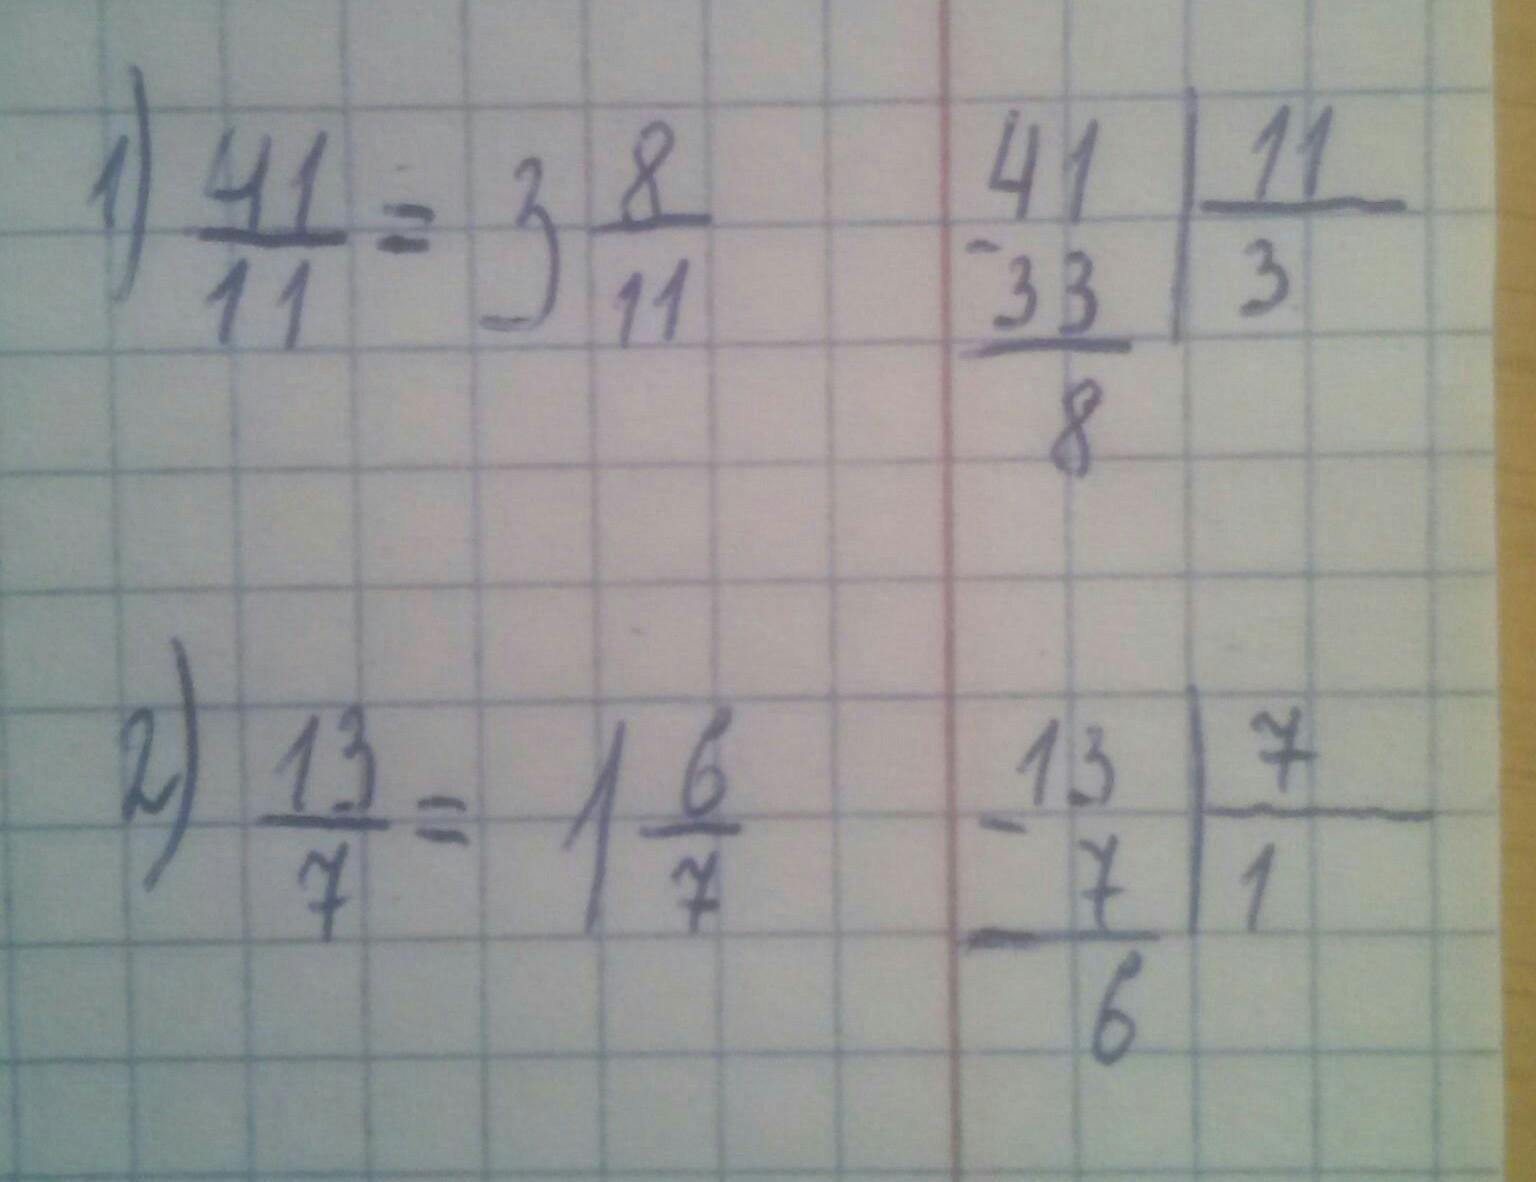 1) 41/11 = 3 8/11
41 | 11
- 33 | 3
8
2) 13/7 = 1 6/7
13 | 7
- 7 | 1
6